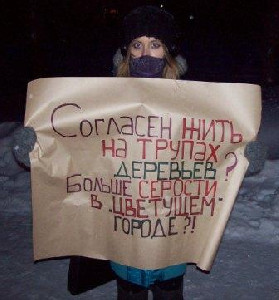 СОГЛАСЕН ЖИТЬ
НА ТРУПАХ
ДЕРЕВЬЕВ?
БОЛЬШЕ СЕРОСТИ
В "ЦВЕТУЩЕМ"
ГОРОДЕ?!